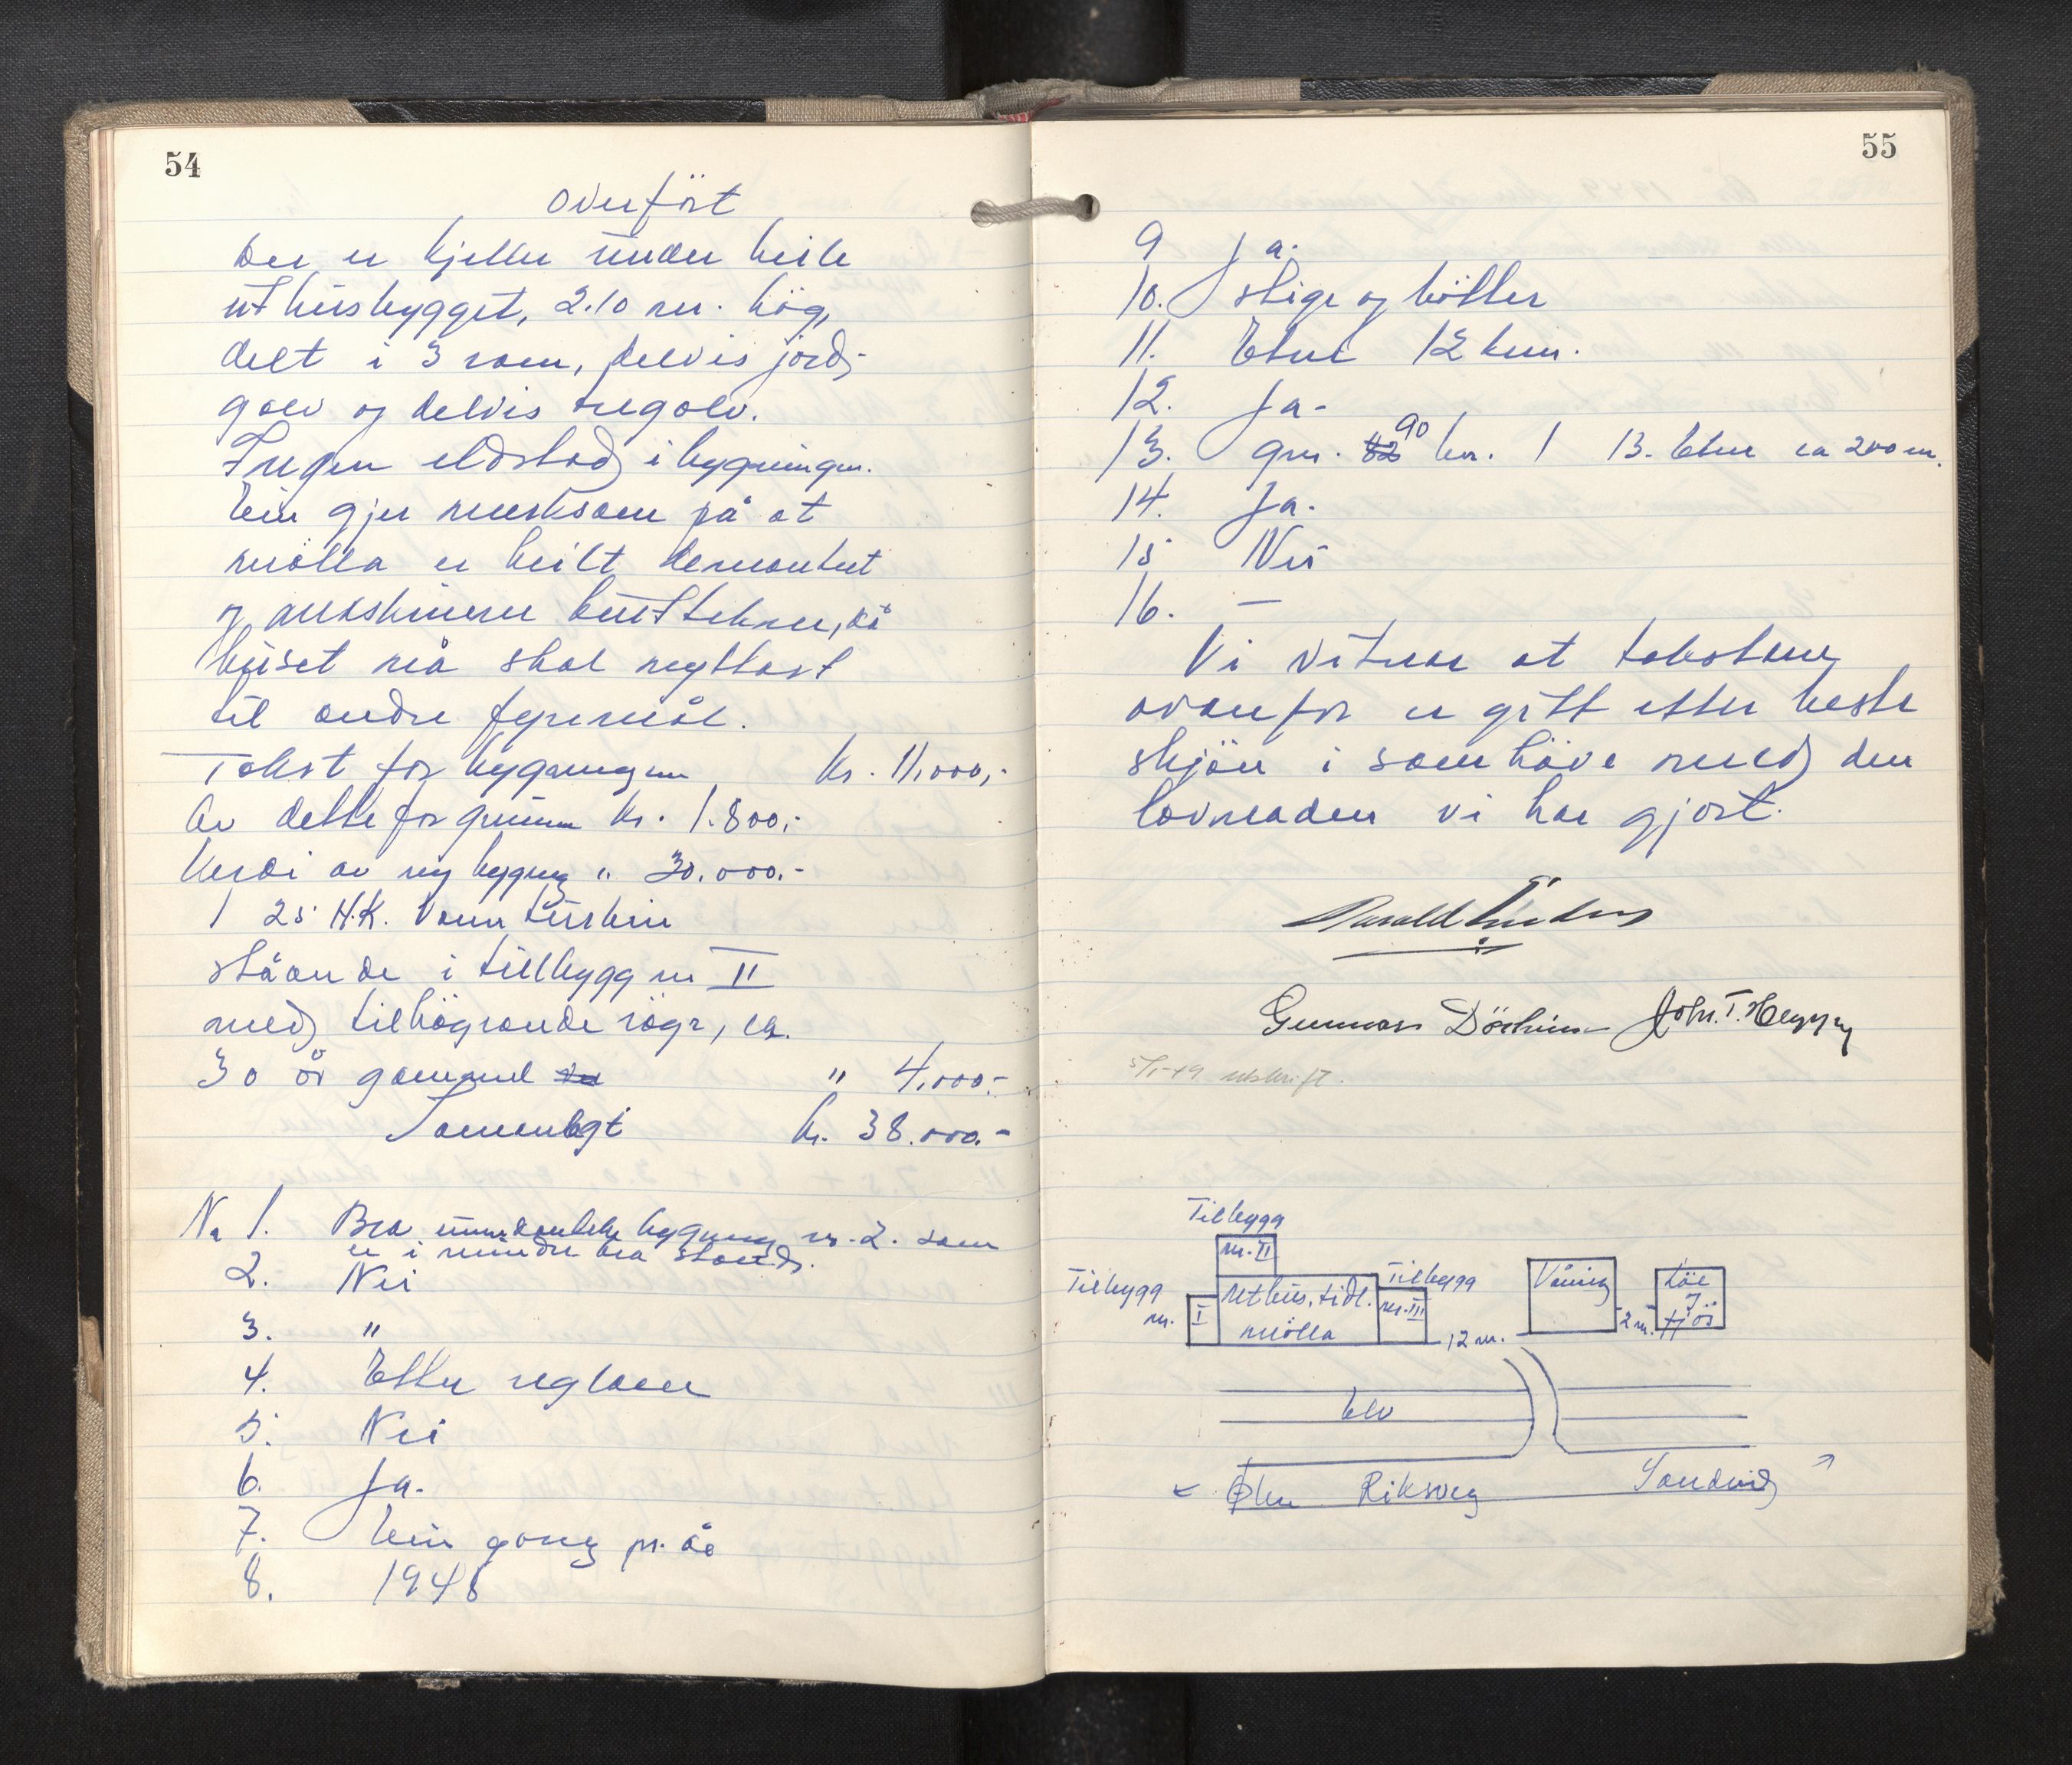 54
overfört
Der er kjeller under heile
uthusbygget, 2.10 m. hög,
delt i 3 rom, delvis jord-
golv og delvis tregolv.
Ingen eldstad i bygningen.
Ein gjer merksam på at
mölla er heilt demontert
og maskinene burttekne, då
huset nå skal nyttast
til andre fyremål.
Takst for bygningen Kr. 11.000,-
Av dette for grunnm Kr. 1.800,-
Verdi av ny bygning " 30.000.-
1 25 H.K. Vannturbin
ståande i tilbygg nr II
med tilhöyrande röyr, ca.
30 år gammal " 4.000.-
Samanlagt kr. 38.000.-
Nr 1. Bra unnandteke bygning nr. 2. som
er i mindre bra stand.
2. Nei
3. "
4. Etter reglane
5. Nei
6. Ja.
7. Ein gong pr. år
8. 1948
55
9 Ja.
10. Stige og bötter
11. Etne 12 km.
12. Ja-
13. grn. 82 90 br. 1 13. Etne ca 200 m.
14. Ja.
15 Nei
16. —
Vi vitnar at takstane
ovanfor er gitt etter beste
skjön i samhöve med den
lovnaden vi har gjort.
Gunnar Dörheim John. T. Heggen
5/1-49 utskrift.
Tilbygg
nr. II
Tilbygg
nr. I
uthus, tidl.
mölla
Tilbygg
nr. III
12 m.
Våning
2 m.
Löe
og
fjös
Elv
Ølen Riksveg Sandeid